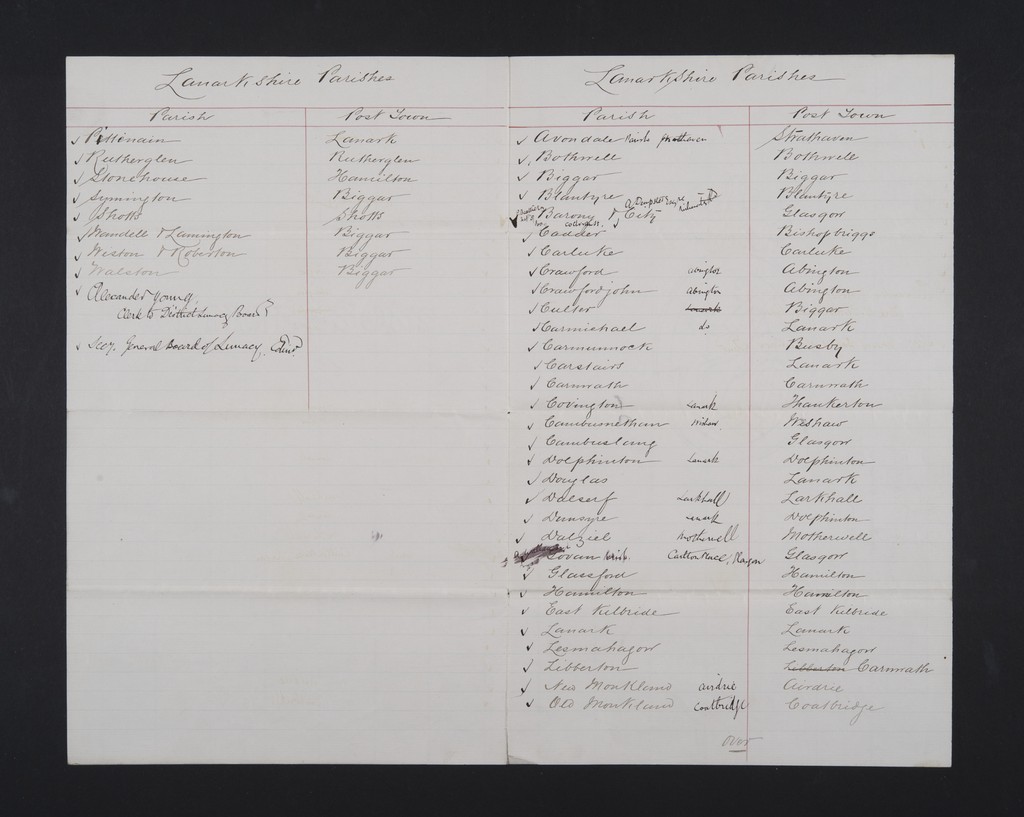 Lanarkshire Parishes
Parish Post Town
✓ Pittinain Lanark
✓ Rutherglen Rutherglen
✓ Stonehouse Hamilton
✓ Symington Biggar
✓ Shotts Shotts
✓ Wandell & Lamington Biggar
✓ Weston & Roberton Biggar
✓ Walston Biggar
✓ Alexander Young
Clerk to District Lunacy Board
✓ Secy. General Board of Lunacy, Edinr
Lanarkshire Parishes
Parish Post Town
✓ Avondale Parish Strathaven Strathaven
✓ Bothwell Bothwell
✓ Biggar Biggar
✓ Blantyre Blantyre
✓ Barony & City Glasgow
✓ Cadder Bishopbriggs
✓ Carluke Carluke
✓ Crawford Abington Abington
✓ Crawfordjohn Abington Abington
✓ Culter Lanark Biggar
✓ Carmichael do Lanark
✓ Carmunnock Busby
✓ Carstairs Lanark
✓ Carnwath Carnwath
✓ Covington Lanark Thankerton
✓ Cambusnethan Wishaw Wishaw
✓ Cambuslang Glasgow
✓ Dolphinton Lanark Dolphinton
✓ Douglas Lanark
✓ Dalserf Larkhall Larkhall
✓ Dunsyre Lanark Dolphinton
✓ Dalziel Motherwell Motherwell
Govan Parish Carlton Place, Glasgow Glasgow
✓ Glassford Hamilton
✓ Hamilton Hamilton
✓ East Kilbride East Kilbride
✓ Lanark Lanark
✓ Lesmahagow Lesmahagow
✓ Libberton Libberton Carnwath
✓ New Monkland Airdrie Airdrie
✓ Old Monkland Coatbridge Coatbridge
over